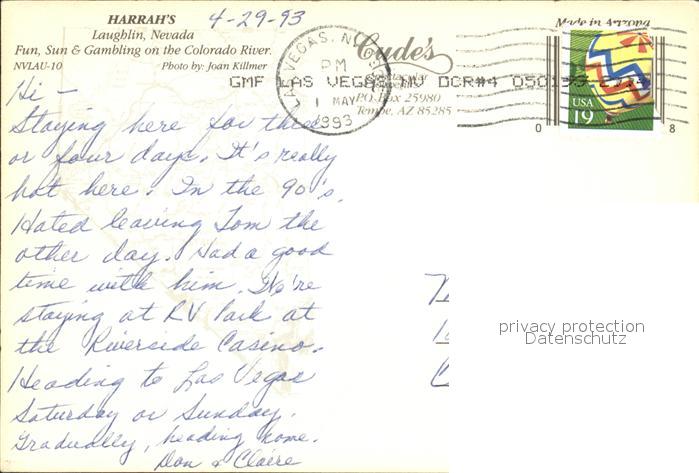 HARRAH'S
Laughlin, Nevada
Fun, Sun & Gambling on the Colorado River.
NVLAU-10 Photo by: Joan Killmer
4-29-93
Made in Arizona
LAS VEGAS, NV
PM
1 MAY
1993
GMF LAS VEGAS NV DCR#4
P.O. Box 25980
Tempe, AZ 85285
USA
19
0 8
Hi -
Staying here for three
or four days. It's really
hot here. In the 90's.
Hated leaving Tom the
other day. Had a good
time with him. We're
staying at RV Park at
the Riverside Casino.
Heading to Las Vegas
Saturday or Sunday.
Gradually, heading home.
Don & Claire
privacy protection
Datenschutz